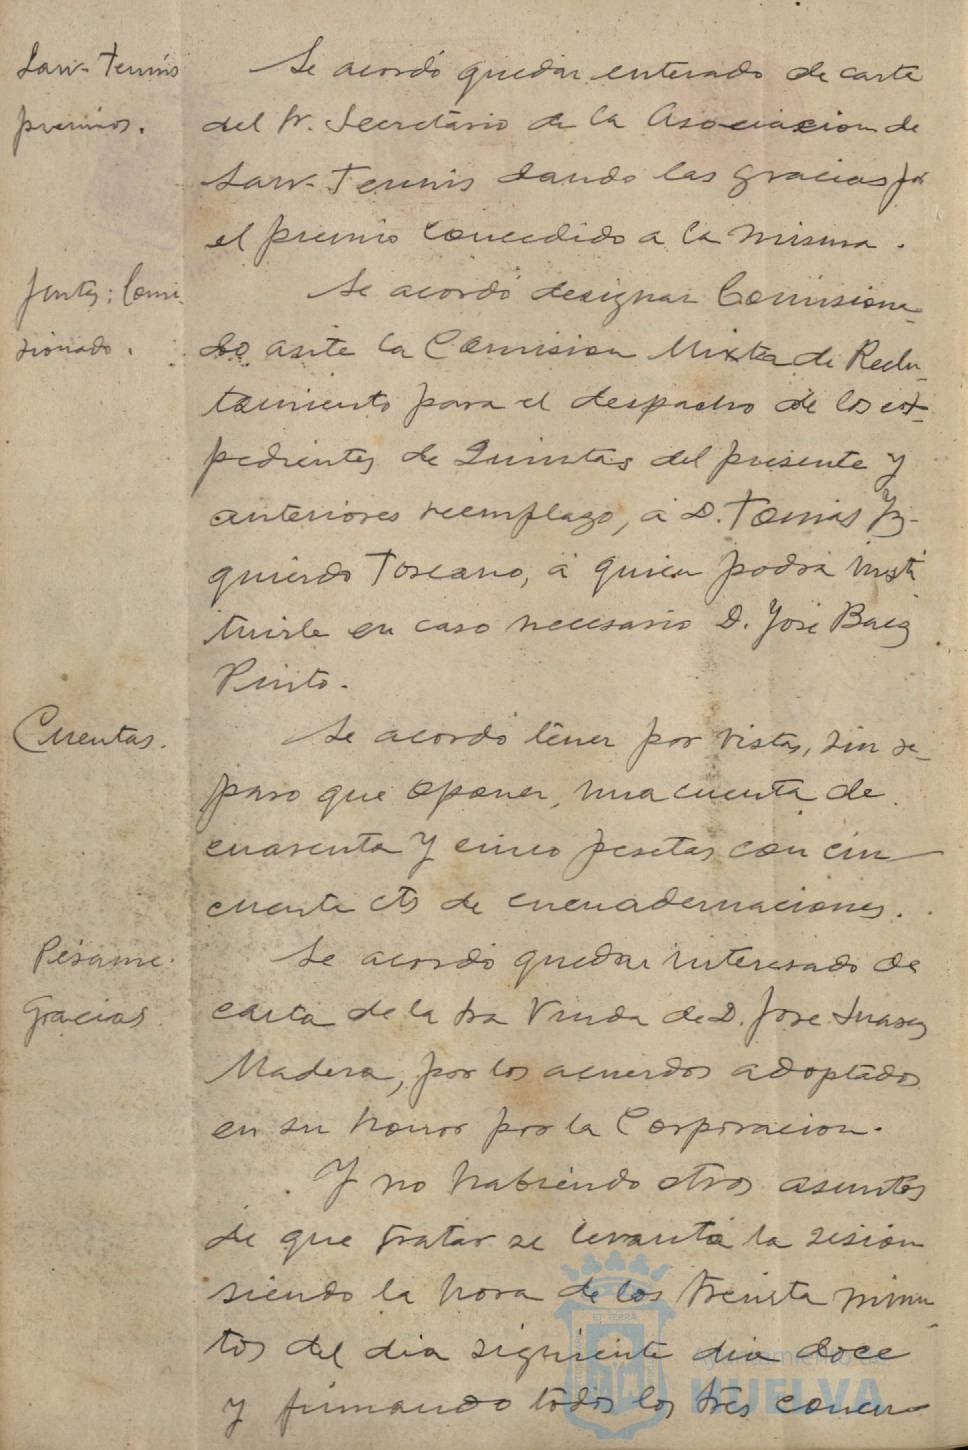 Law-Tennis
premios.
Se acordó quedar enterado de carta
del Sr. Secretario de la Asociacion de
Law-Tennis dando las gracias por
el premio concedido a la misma.
Juntas: Comi-
sionado.
Se acordó designar Comisiona-
do ante la Comision Mixta de Reclu-
tamiento para el despacho de los ex-
pedientes de Quintas del presente y
anteriores reemplazo, a D. Tomás Yz-
quierdo Toscano, a quien podrá susti
tuirle en caso necesario D. José Baez
Pinto.
Cuentas.
Se acordó tener por vistas, sin re-
paro que oponer, una cuenta de
cuarenta y cinco pesetas con cin
cuenta cts de encuadernaciones.
Pésame.
Gracias
Se acordó quedar interesado de
carta de la Sra Viuda de D. José Suarez
Madera, por los acuerdos adoptados
en su honor por la Corporacion.
Y no habiendo otros asuntos
de que tratar se levantó la sesión
siendo la hora de los treinta minu-
tos del dia siguiente dia doce
y firmando todos los tres concu-
Ayuntamiento de
HUELVA